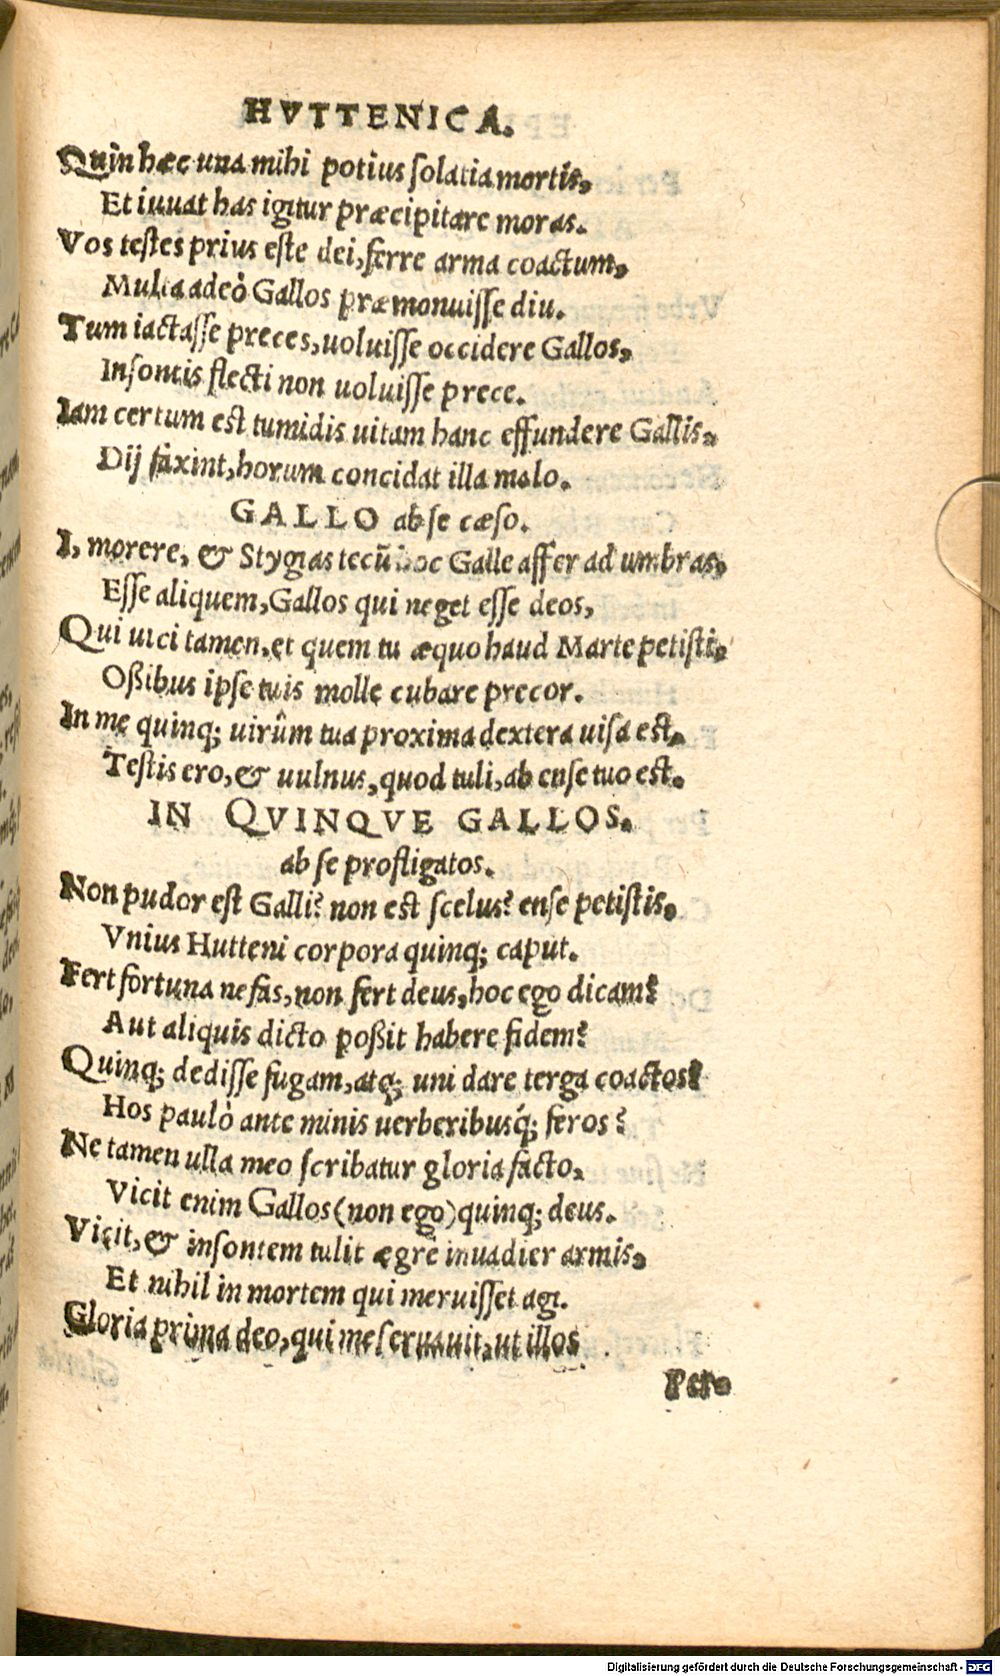 HVTTENICA.
Quin hæc una mihi potius solatia mortis,
Et iuuat has igitur præcipitare moras.
Vos testes prius este dei, ferre arma coactum,
Multa adeò Gallos præmonuisse diu.
Tum iactasse preces, uoluisse occidere Gallos,
Insontis flecti non uoluisse prece.
Iam certum est tumidis uitam hanc effundere Gallis,
Dij faxint, horum concidat illa malo.
GALLO ab se cæso.
I, morere, & Stygias tecũ hoc Galle affer ad umbras,
Esse aliquem, Gallos qui neget esse deos,
Qui uici tamen, et quem tu æquo haud Marte petisti,
Oßibus ipse tuis molle cubare precor.
In me quinq; uirûm tua proxima dextera uisa est,
Testis ero, & uulnus, quod tuli, ab ense tuo est.
IN QVINQVE GALLOS.
ab se profligatos.
Non pudor est Galli? non est scelus? ense petistis,
Vnius Hutteni corpora quinq; caput.
Fert fortuna nefas, non fert deus, hoc ego dicam?
Aut aliquis dicto poßit habere fidem?
Quinq; dedisse fugam, atq; uni dare terga coactos?
Hos paulò ante minis uerberibusq́; feros?
Ne tamen ulla meo scribatur gloria facto,
Vicit enim Gallos (non ego) quinq; deus.
Vicit, & insontem tulit ægrè inuadier armis,
Et nihil in mortem qui meruisset agi.
Gloria prima deo, qui me seruauit, ut illos
Per-
Digitalisierung gefördert durch die Deutsche Forschungsgemeinschaft - DFG